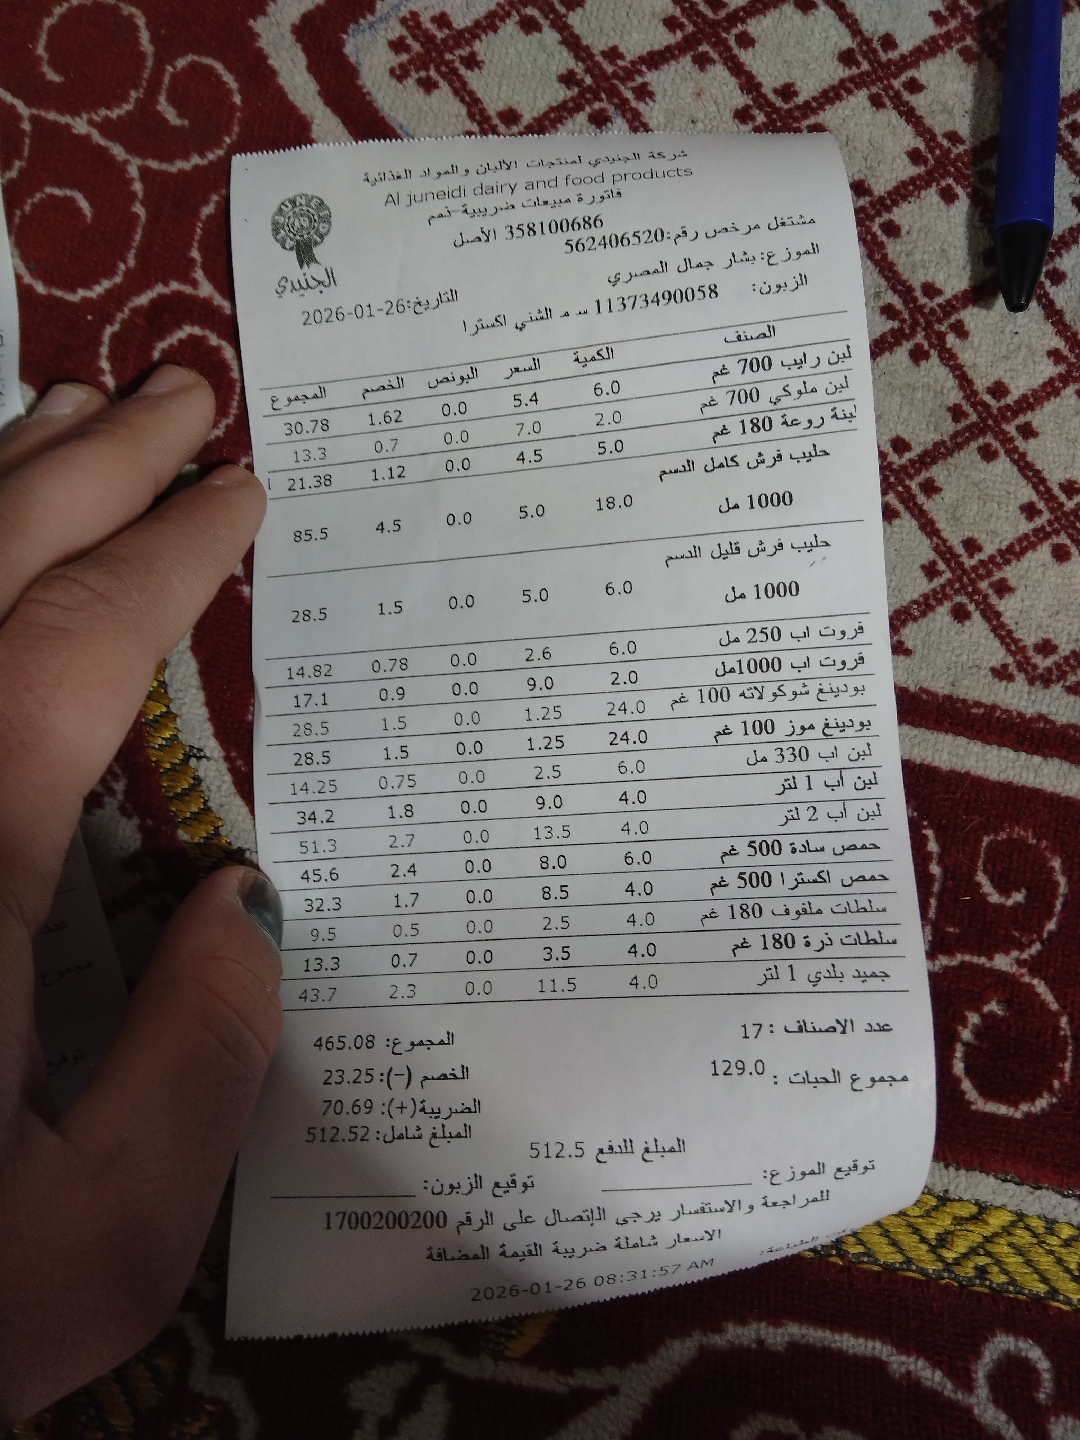 شركة الجنيدي لمنتجات الألبان والمواد الغذائية
Al juneidi dairy and food products
فاتورة مبيعات ضريبية-ذمم
358100686 الأصل
مشتغل مرخص رقم:562406520
الموزع:بشار جمال المصري
الزبون: 11373490058 س م الشني اكسترا
التاريخ:2026-01-26
الجنيدي
الصنف الكمية السعر البونص الخصم المجموع
لبن رايب 700 غم 6.0 5.4 0.0 1.62 30.78
لبن ملوكي 700 غم 2.0 7.0 0.0 0.7 13.3
لبنة روعة 180 غم 5.0 4.5 0.0 1.12 21.38
حليب فرش كامل الدسم
1000 مل 18.0 5.0 0.0 4.5 85.5
حليب فرش قليل الدسم
1000 مل 6.0 5.0 0.0 1.5 28.5
فروت اب 250 مل 6.0 2.6 0.0 0.78 14.82
فروت اب 1000مل 2.0 9.0 0.0 0.9 17.1
بودينغ شوكولاته 100 غم 24.0 1.25 0.0 1.5 28.5
بودينغ موز 100 غم 24.0 1.25 0.0 1.5 28.5
لبن اب 330 مل 6.0 2.5 0.0 0.75 14.25
لبن أب 1 لتر 4.0 9.0 0.0 1.8 34.2
لبن أب 2 لتر 4.0 13.5 0.0 2.7 51.3
حمص سادة 500 غم 6.0 8.0 0.0 2.4 45.6
حمص اكسترا 500 غم 4.0 8.5 0.0 1.7 32.3
سلطات ملفوف 180 غم 4.0 2.5 0.0 0.5 9.5
سلطات ذرة 180 غم 4.0 3.5 0.0 0.7 13.3
جميد بلدي 1 لتر 4.0 11.5 0.0 2.3 43.7
عدد الاصناف : 17 المجموع: 465.08
مجموع الحبات : 129.0 الخصم (-): 23.25
الضريبة(+): 70.69
المبلغ شامل: 512.52
المبلغ للدفع 512.5
توقيع الموزع: توقيع الزبون:
للمراجعة والاستفسار يرجى الإتصال على الرقم 1700200200
الاسعار شاملة ضريبة القيمة المضافة
2026-01-26 08:31:57 AM